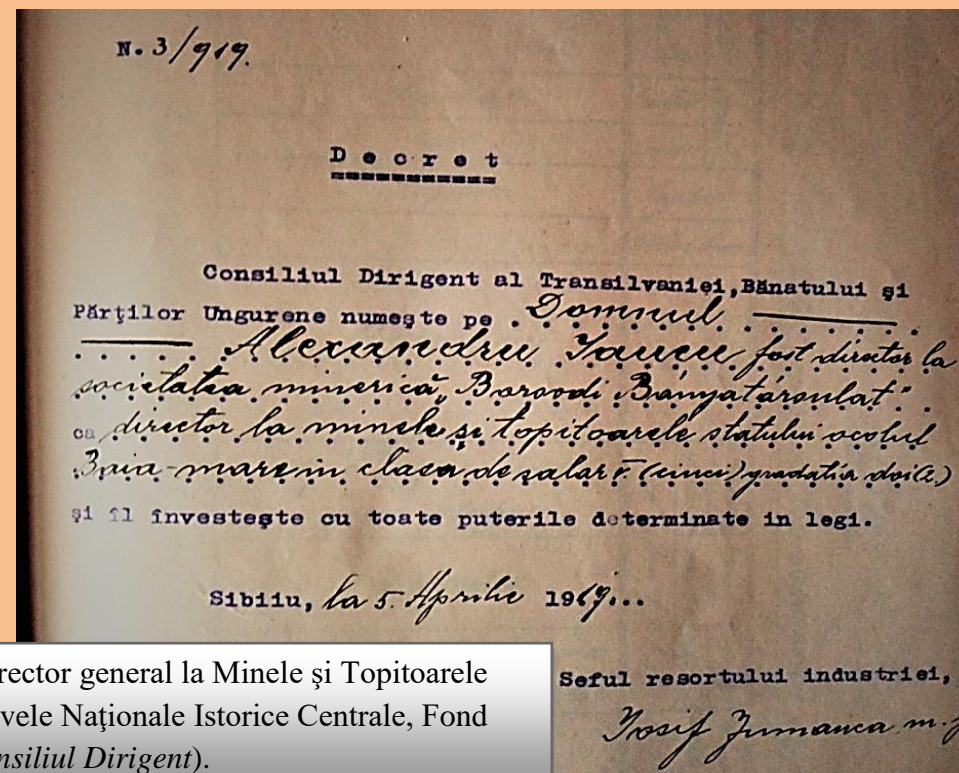 N. 3/919.
Decret
Consiliul Dirigent al Transilvaniei,Bănatului şi
Părţilor Ungurene numeşte pe . Domnul
Alexandru Iancu fost director la
societatea minerică „Borsodi Bányatársulat"
ca director la minele si topitoarele statului ocolul
Baia-mare in clasa de salar V. (cinci) gradatia doi(2.)
şi îl învesteşte cu toate puterile determinate in legi.
Sibiiu, la 5. Aprilie 1919...
Seful resortului industriei,
Iosif Jumanca m.p
rector general la Minele şi Topitoarele
vele Naţionale Istorice Centrale, Fond
nsiliul Dirigent).